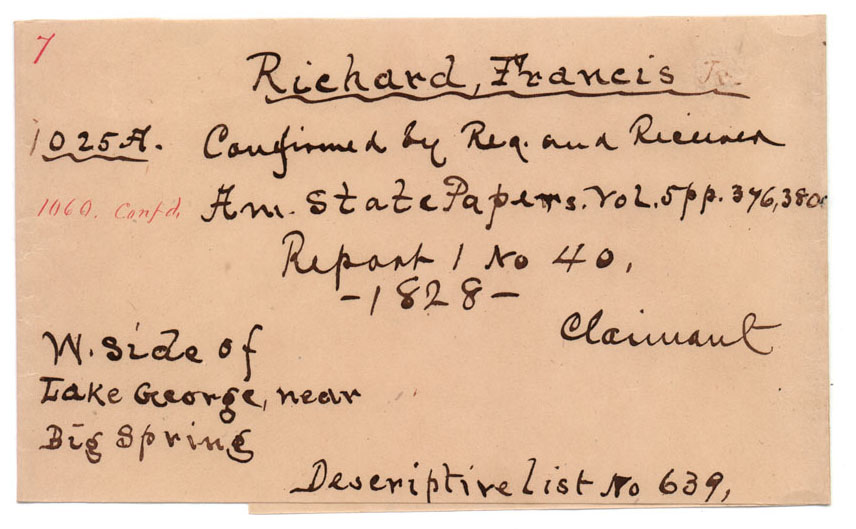 7
Richard, Francis Jr.
1025A. Confirmed by Reg. and Receiver
1060. Conf'd. Am. State Papers. Vol. 5 pp. 376, 380
Report 1 No 40,
-1828-
Claimant
W. Side of
Lake George, near
Big Spring
Descriptive list No 639,